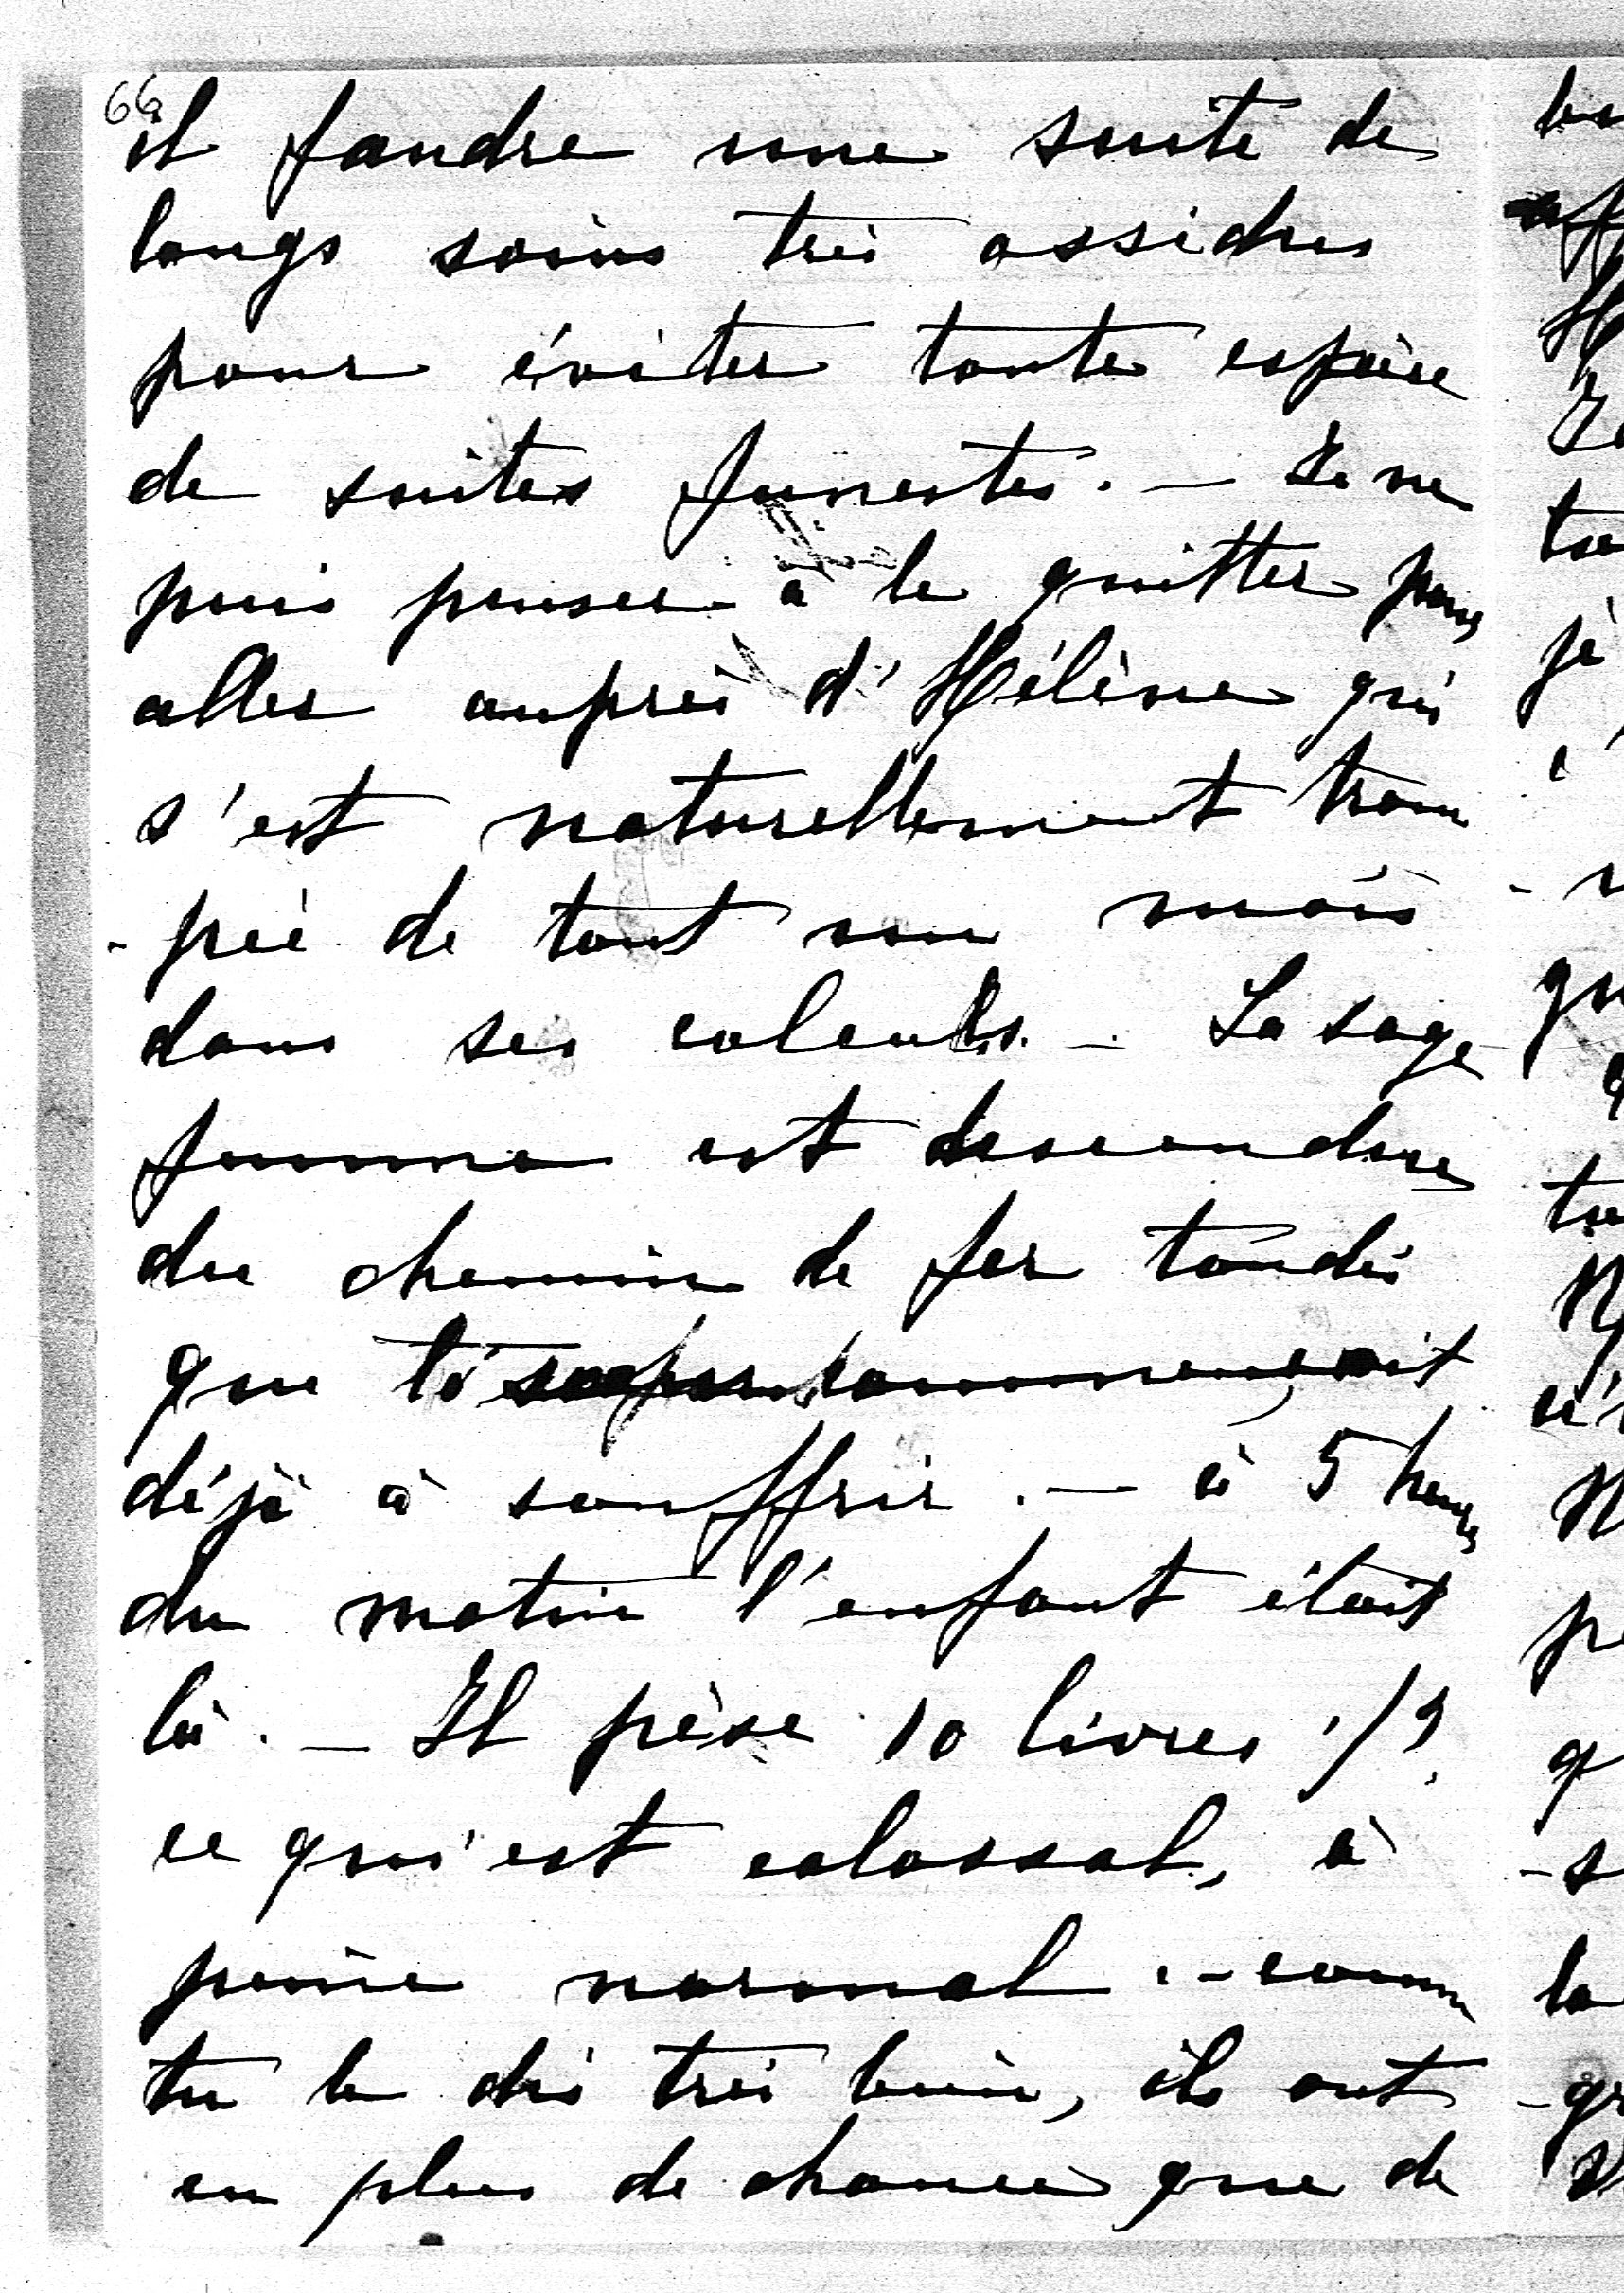 66
il faudra une suite de
longs soins très assidus
pour éviter toute espèce
de suites funestes. — Je ne
puis penser à le quitter pour
aller auprès d'Hélène qui
s'est naturellement trom
- pée de tout un mois
dans ses calculs. — La sage
femme est descendue
du chemin de fer tandis
que commençait
déjà à souffrir. — à 5 heures
du matin l'enfant était
là. — Il pèse 10 livres 1/2
ce qui est colossal, à
peine normal. — comme
tu le dis très bien, ils ont
eu plus de chance que de